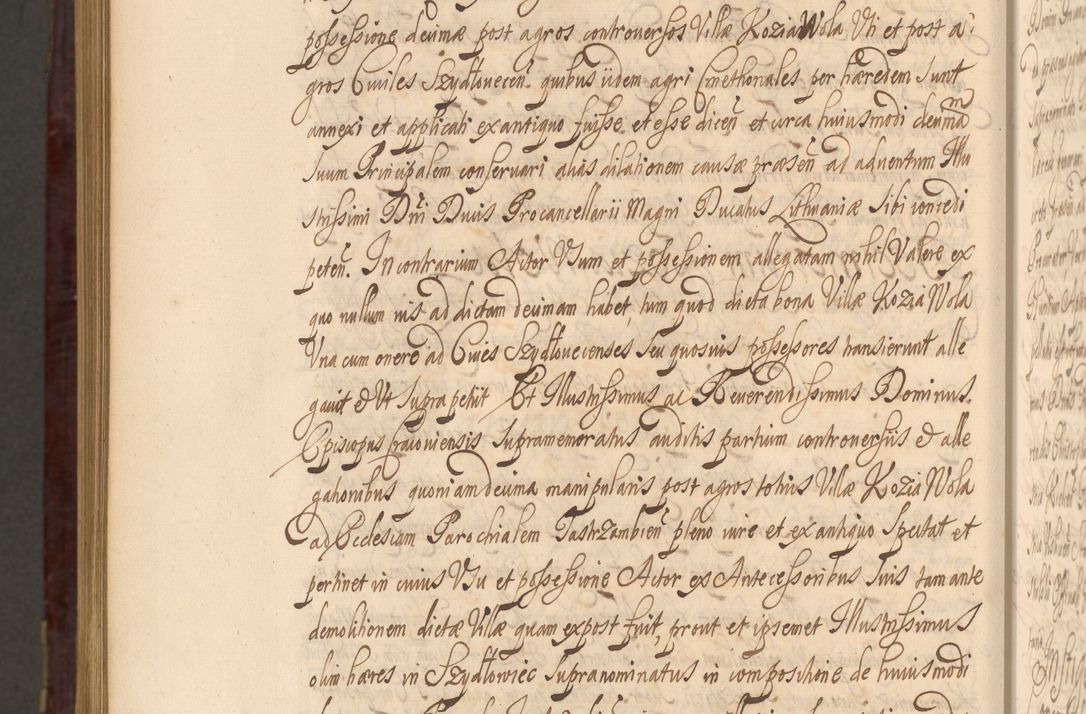 possessione decimæ post agros controversos Villæ KoziaWola Vti et post a
gros Civiles Szydłouecen̄ quibus iidem agri Cmethonales per hæredem sunt
annexi et applicati ex antiquo fuisse et esse dicen̄ et circa huiusmodi decimam
suum Principalem conseruari alias dilationem causæ præsen̄ ad aduentum Illu
strissimi Dn̄i Ducis Procancellarii Magni Ducatus Lithuaniæ sibi concedi
peten̄. In contrarium Actor Vsum et possessionem allegatam nihil Valere ex
quo nullum ius ad dictam decimam habet, tum quod dicta bona Villæ Kozia Wola
Vna cum onere ad Ciues Szydłouecenses seu quosuis possessores transierunt alle
gauit & Vt supra petiit Et Illustrissimus ac Reuerendissimus Dominus
Episcopus Cracouiensis supramemoratus auditis partium controuersiis & alle
gationibus quoniam decima manipularis post agros totius Villæ Kozia Wola
ad Ecclesiam Parochialem Jastrzambien̄ pleno iure et ex antiquo spectat et
pertinet in cuius Vsu et possessione Actor ex Antecessoribus suis tam ante
demolitionem dictæ Villæ quam ex post fuit, prout et ipsemet Illustrissimus
olim hæres in Szydłowiec supranominatus in compositione de huiusmodi